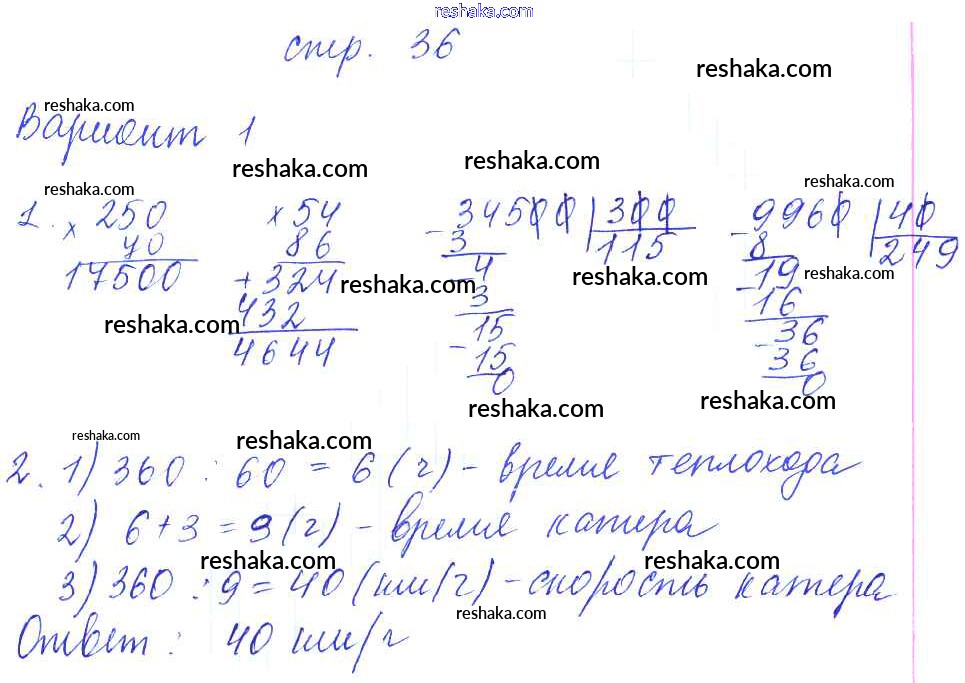 reshaka.com
стр. 36
reshaka.com
reshaka.com
Вариант 1
reshaka.com
reshaka.com
reshaka.com
reshaka.com
1. × 250 × 54 - 34500 | 300 - 9960 | 40
40 86 3 115 8 249
17500 + 324 - 4 19
reshaka.com
reshaka.com
reshaka.com
432 3 - 16
4644 15 - 36
- 15 36
0 0
reshaka.com
reshaka.com
reshaka.com
reshaka.com
2. 1) 360 : 60 = 6 (ч) - время теплохода
2) 6 + 3 = 9 (ч) - время катера
reshaka.com
reshaka.com
3) 360 : 9 = 40 (км/ч) - скорость катера
reshaka.com
Ответ : 40 км/ч